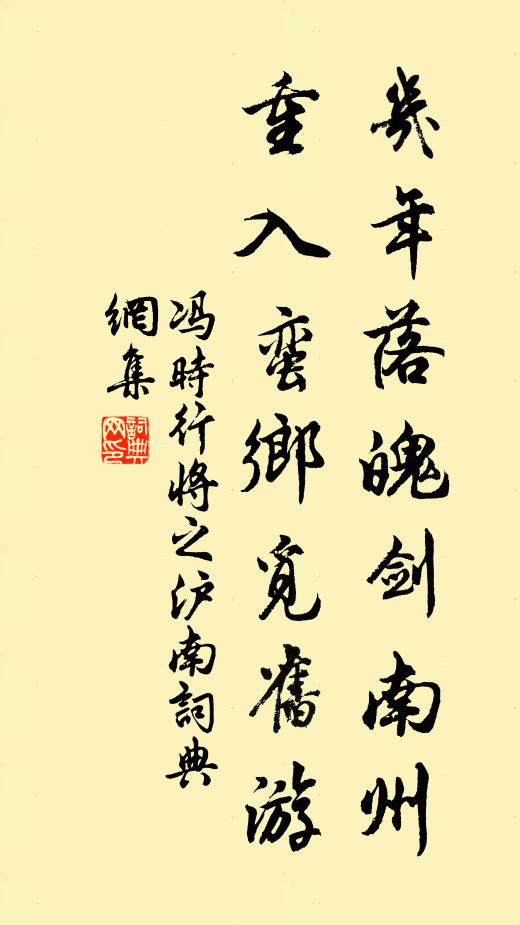 幾年落魄剑南州
重入蛮鄉覓舊游
冯時行将之沪南詞典
網集
詞典网印